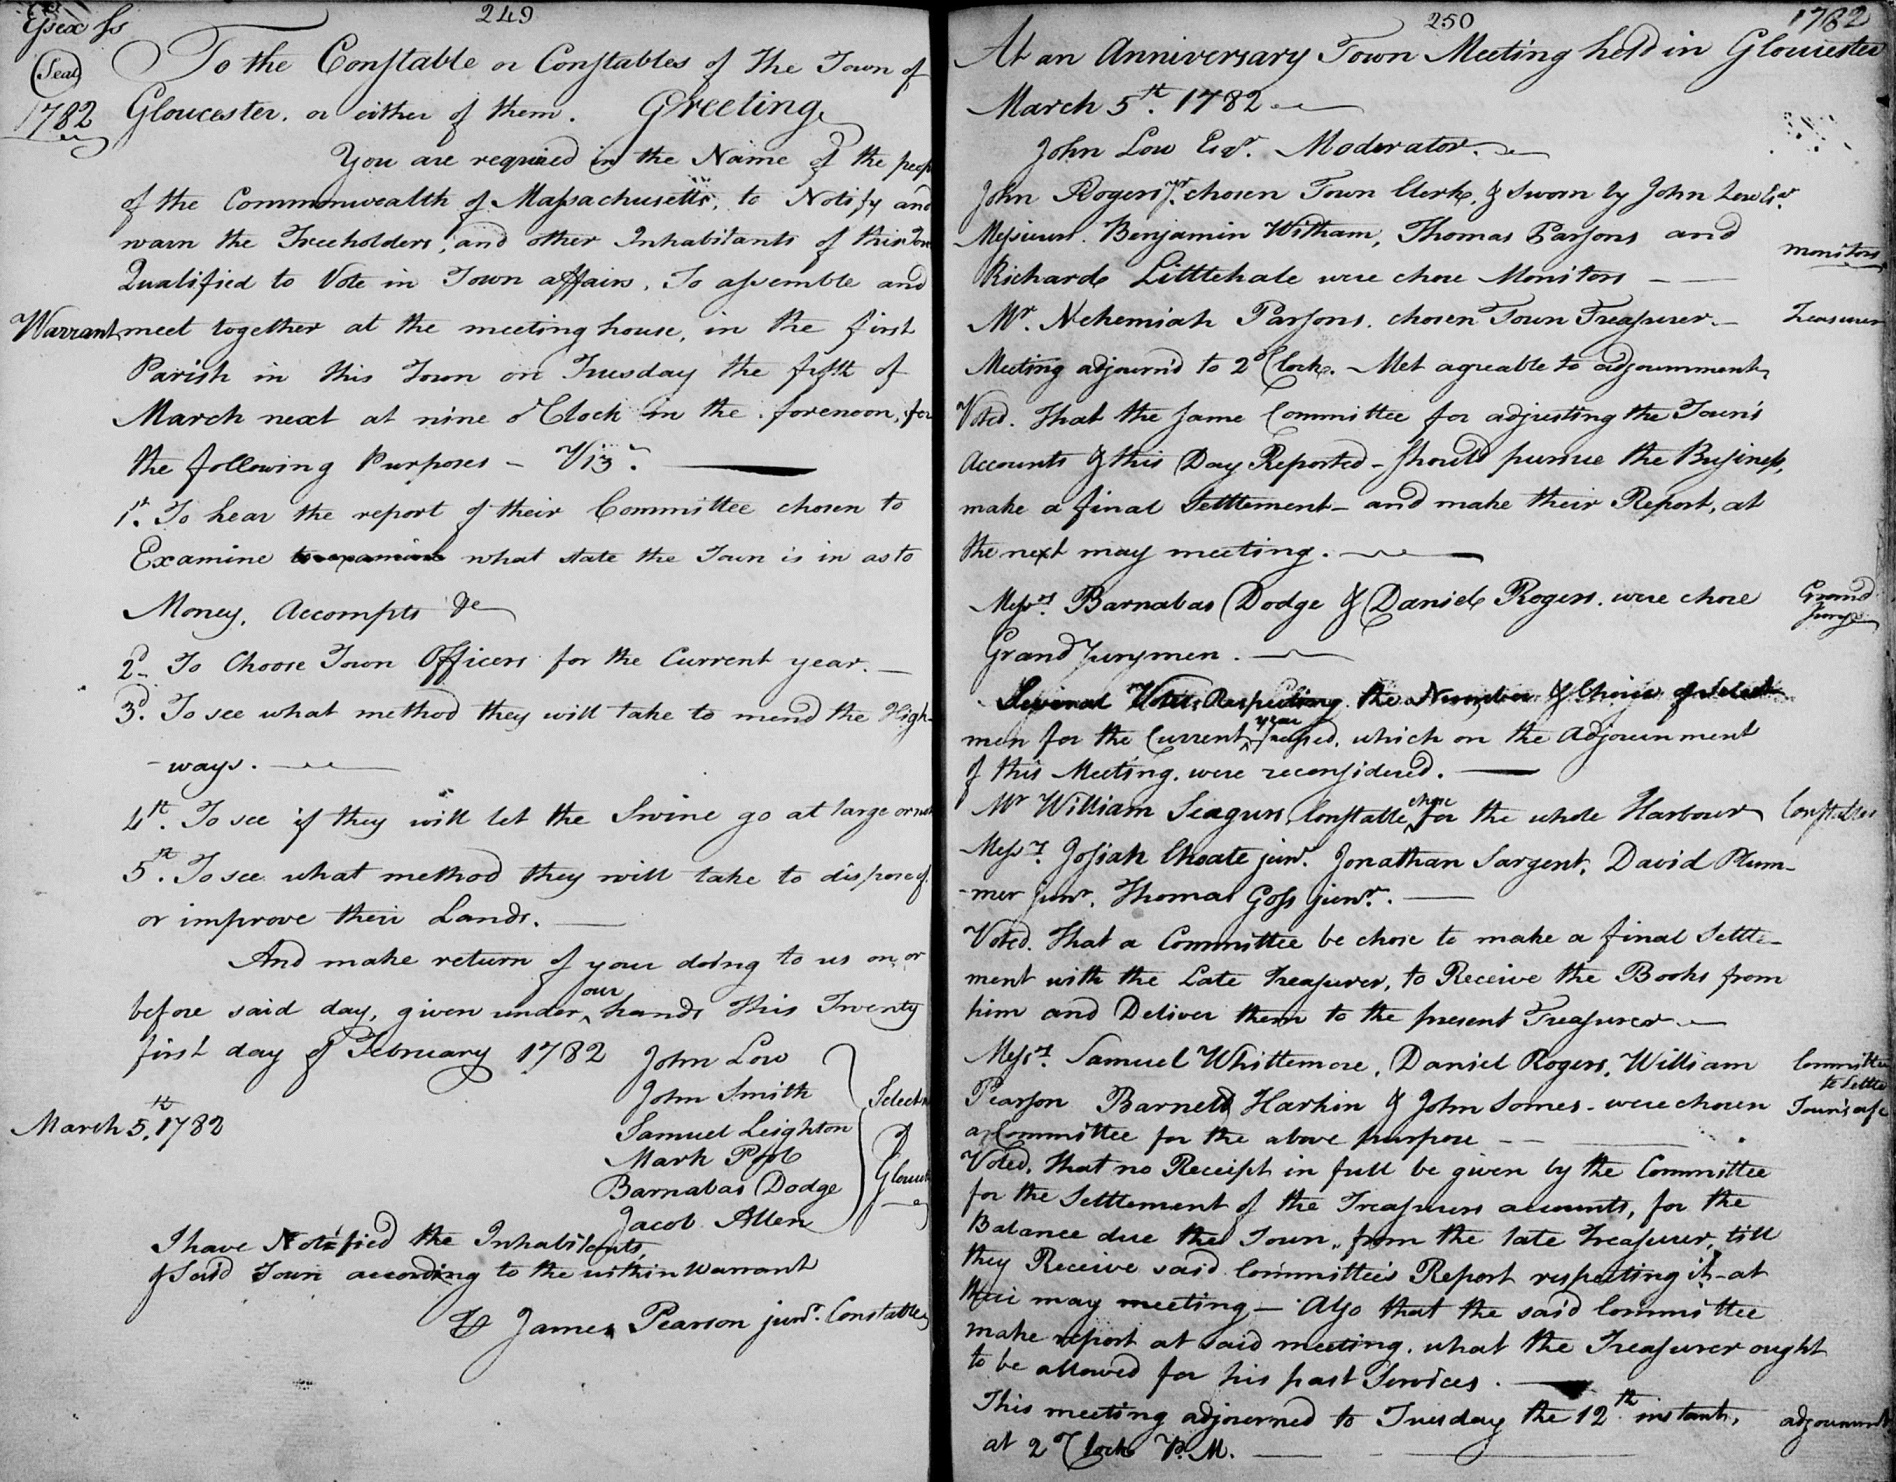 249
Essex Ss
Seal
1782
To the Constable or Constables of the Town of
Gloucester, or either of them. Greeting
You are required in the Name of the peop
of the Commonwealth of Massachusetts, to Notify and
warn the Freeholders, and other Inhabitants of this Tow
Qualified to Vote in Town affairs, To assemble and
Warrant
meet together at the meeting house, in the first
Parish in this Town on Tuesday the fifth of
March next at nine o'Clock in the forenoon, for
the following Purposes - Viz.
1st. To hear the report of their Committee chosen to
Examine to examine what state the Town is in as to
Money, Accompts &c
2d. To Choose Town Officers for the Current year. —
3d. To see what method they will take to mend the High-
-ways. —
4th. To see if they will let the Swine go at large or not
5th. To see what method they will take to dispose of
or improve their Lands. —
And make return of your doing to us on or
before said day, given under our hands this Twenty
first day of February 1782
John Low
John Smith
Samuel Leighton
Mark Pool
Barnabas Dodge
Jacob Allen
Selectm
of
Glouces
March 5th. 1782
I have Notified the Inhabitants
of Said Town according to the within warrant
James Pearson junr. Constable
250
1782
At an Anniversary Town Meeting held in Gloucester
March 5th. 1782
John Low Esqr. Moderator.
John Rogers jr. chosen Town Clerk, & Sworn by John Low Esqr.
Messieurs. Benjamin Witham, Thomas Parsons and
Richard Littlehale were chose Monitors —
monitors
Mr. Nehemiah Parsons. chosen Town Treasurer. —
Treasurer
Meeting adjourn'd to 2 o'Clock. - Met agreable to adjournment,
Voted. That the same Committee for adjusting the Town's
Accounts & this Day Reported - should pursue the Business,
make a final Settlement - and make their Report, at
the next may meeting. —
Messrs. Barnabas Dodge & Daniel Rogers. were chose
Grand Jurymen. —
Grand
Jury
Several Votes Respecting the Number & Choice of Select
men for the Current year passed, which on the Adjournment
of this Meeting, were reconsidered. —
Mr William Seagurs, Constable chose for the whole Harbour
Constables
Messrs. Josiah Choate junr. Jonathan Sargent, David Plum-
-mer junr. Thomas Goss junr. —
Voted. That a Committee be chose to make a final Settle-
ment with the Late Treasurer, to Receive the Books from
him and Deliver them to the present Treasurer —
Messrs. Samuel Whittemore, Daniel Rogers, William
Pearson Barnett Harkin & John Somes - were chosen
a Committee for the above purpose —
Committee
to Settle
Town's
Voted. That no Receipt in full be given by the Committee
for the Settlement of the Treasurers accounts, for the
Balance due the Town, from the late Treasurer, till
they Receive said Committee's Report respecting it - at
their may meeting — Also that the said Committee
make report at said meeting, what the Treasurer ought
to be allowed for his past Services. —
This meeting adjourned to Tuesday the 12th instant,
at 2 o'Clock P.M. —
adjournment